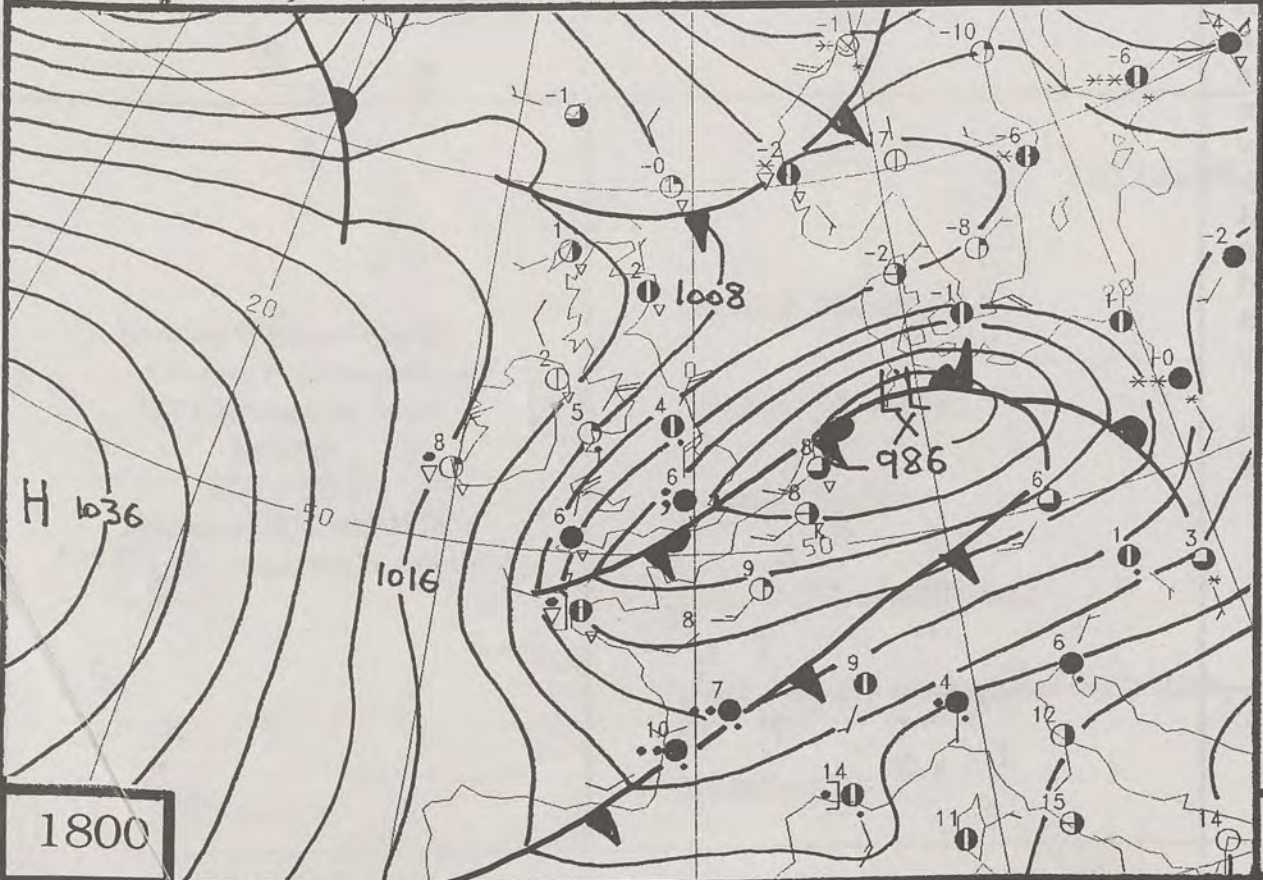 -1
-10
-4
-6
-1
-0
-2
7
-6
1
2
1008
-2
-8
-2
20
-1
-0
2
5
4
8
LL
X
986
8
6
6
8
6
H 1036
50
50
1
3
1016
9
8
6
7
9
4
10
12
14
11
15
14
1800